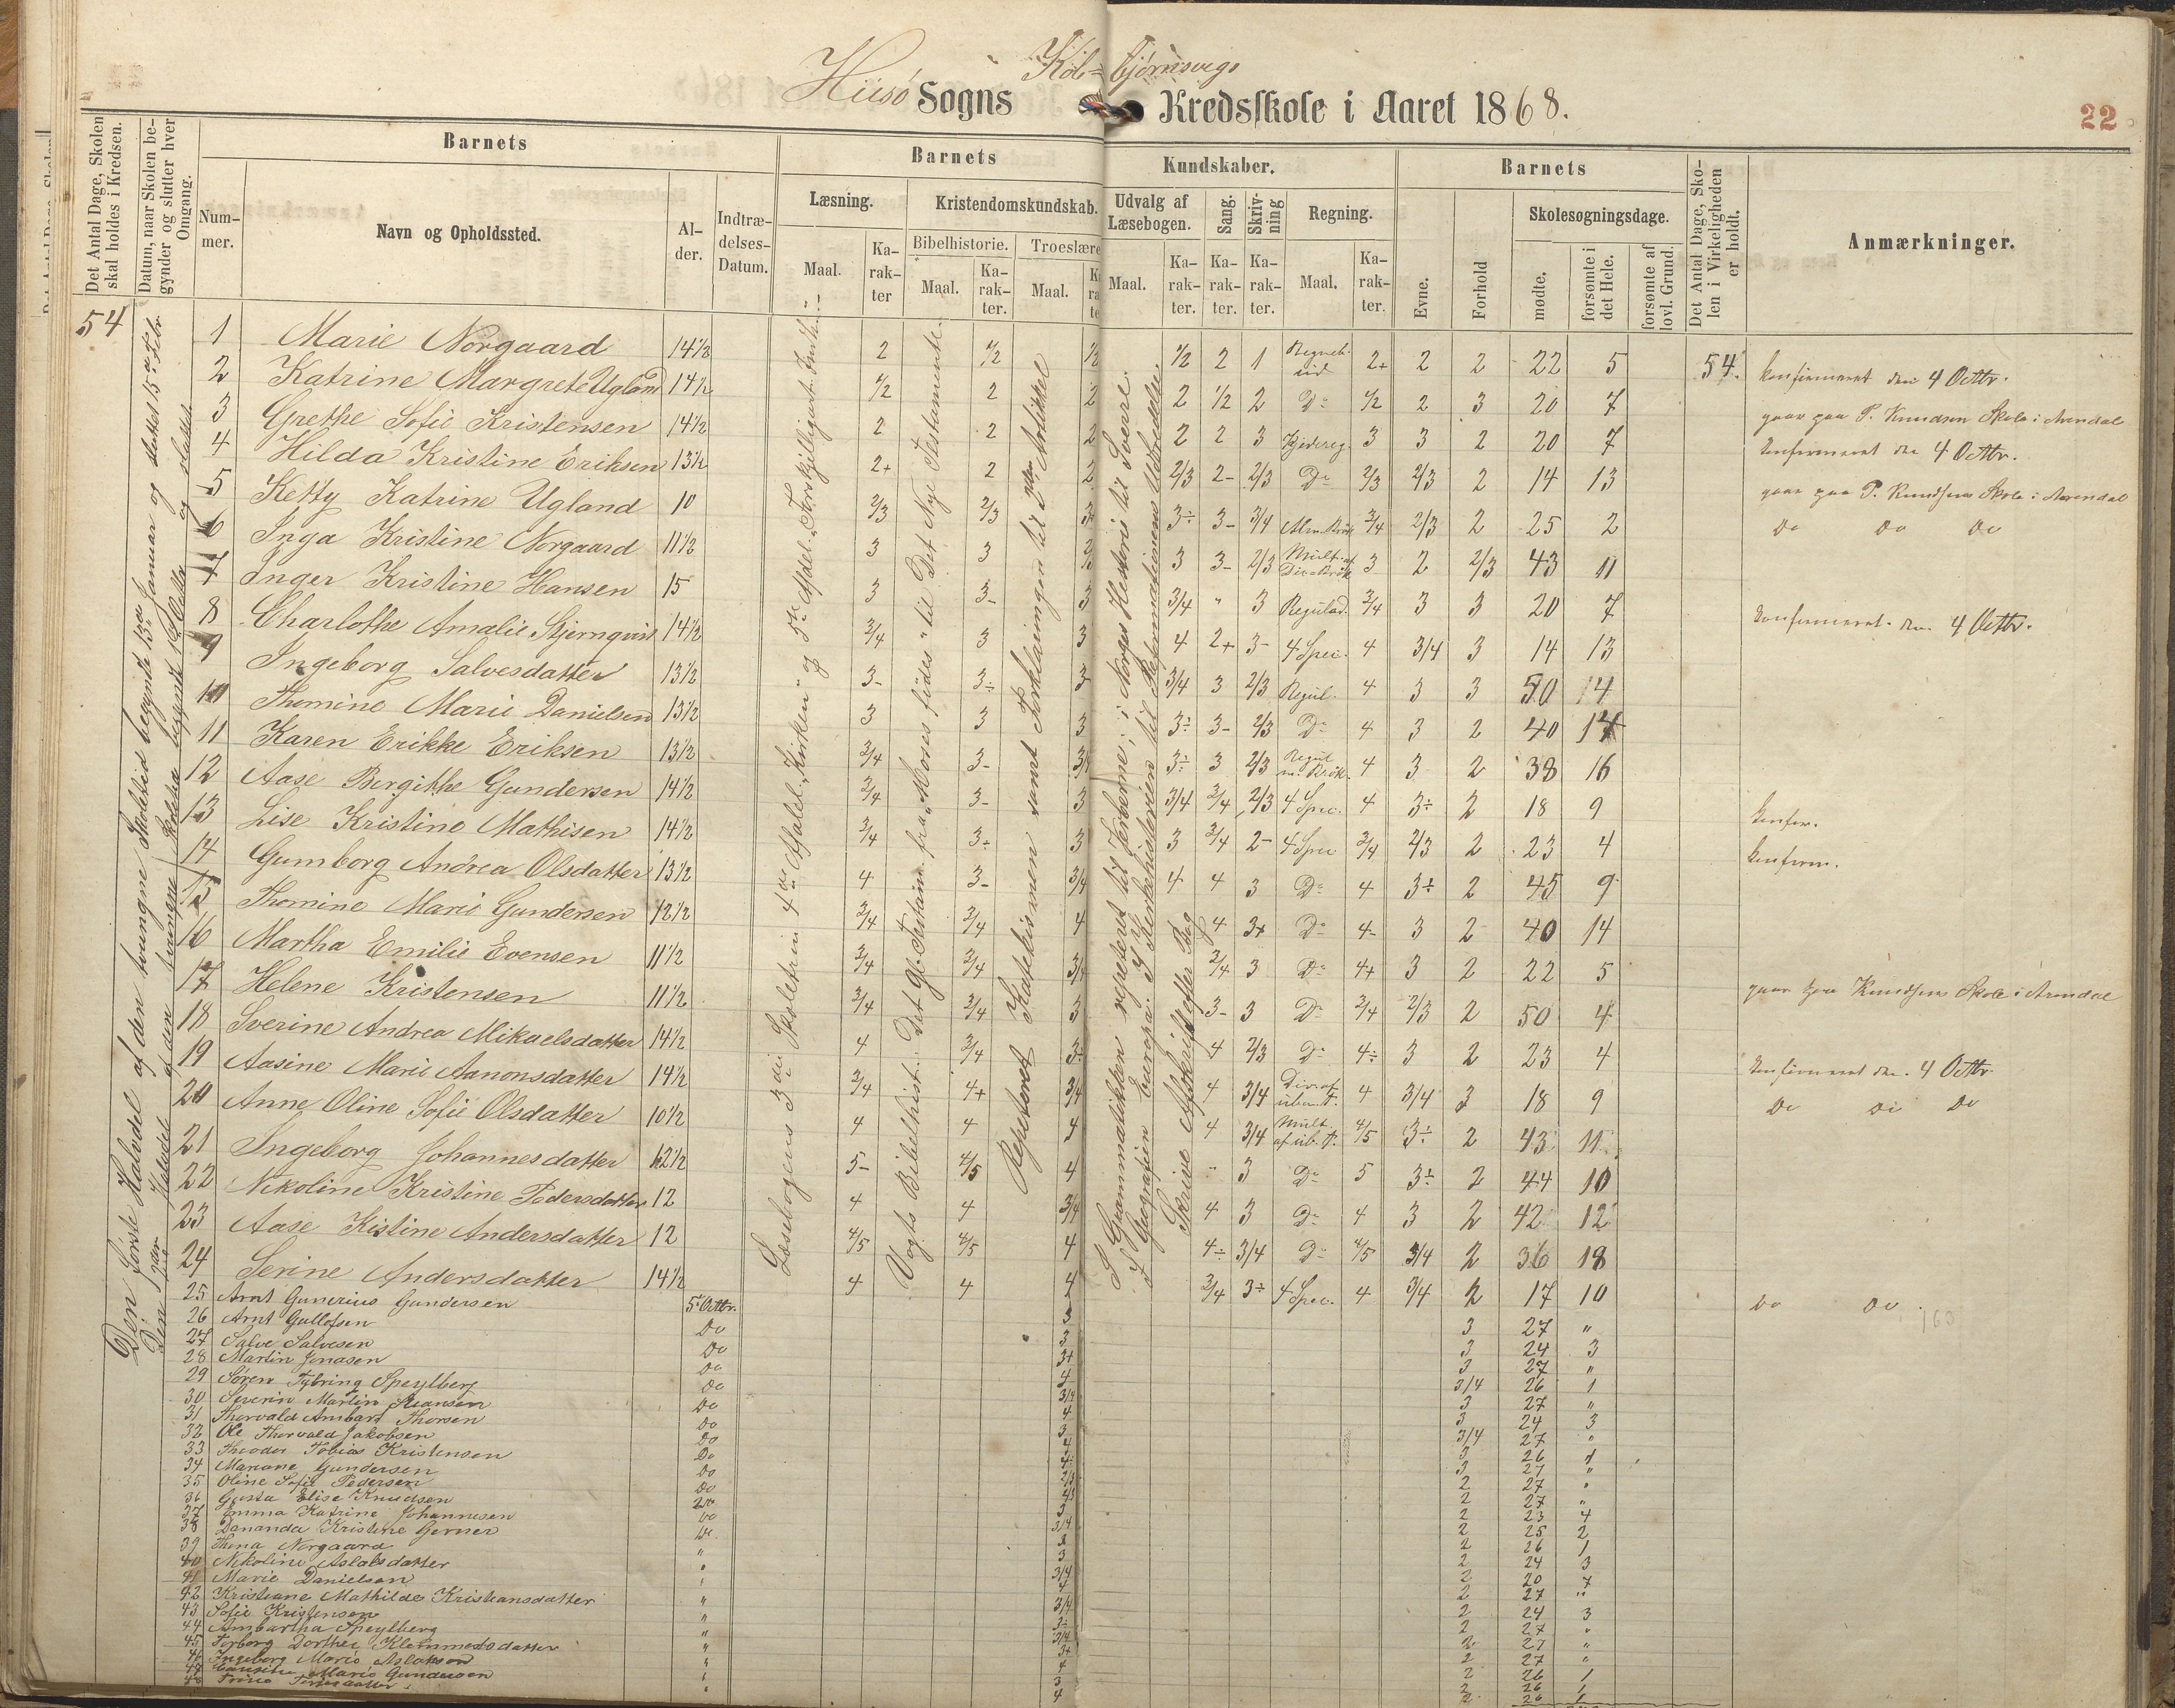 Hiisø Sogns Kolbjørnsvigs Kredsskole i Aaret 1868.
22
Det Antal Dage, Skolen skal holdes i Kredsen.
Datum, naar Skolen begynder og slutter hver Omgang.
Barnets
Nummer.
Navn og Opholdssted.
Alder.
Indtrædelses-Datum.
Barnets Kundskaber.
Læsning.
Maal.
Karakter
Kristendomskundskab.
Bibelhistorie.
Maal.
Karakter.
Troeslære
Maal.
Udvalg af Læsebogen.
Maal.
Karakter.
Sang.
Karakter.
Skrivning
Karakter.
Regning.
Maal.
Karakter.
Barnets
Evne.
Forhold
Skolesøgningsdage.
mødte.
forsømte i det Hele.
forsømte af lovl. Grund.
Det Antal Dage, Skolen i Virkeligheden er holdt.
Anmærkninger.
54
Den første Halvdel af den tvungne Skoletid begynte 13de Januar og sluttet 15de Febr.
Læsebogens 3die Skoletrin 4de Afdel. "Kirken" og 5te Afdel.
Vogts Bibelhist.: Det Gl. Testam. fra "Moses fødes" til Det Nye Testamente.
Repeteret Katekismen samt Forklaringen til Artikkel
I Grammatikken repeteret til Verberne; i Norges Historie til Sverre.
I Geografien Europa. I Kirkehistorien til Reformationens Udbredelse.
Skrive Afskrift efter Bog
1 Marie Norgaard 14½ 2 ½ ½ ½ 2 1 2+ 2 2 22 5 54. konfirmeret den 4 Octbr.
2 Katrine Margrete Ugland 14½ ½ 2 2 2 ½ 2 Do ½ 2 3 20 7 gaar paa P. Knudsen Skole i Arendal
3 Grethe Sofie Kristensen 14½ 2 2 2 2 2 3 Kjedereg. 3 3 2 20 7 konfirmeret den 4 Octbr.
4 Hilda Kristine Eriksen 13½ 2+ 2 2 2/3 2- 2/3 Do 2/3 2/3 2 14 13 gaar paa P. Knudsens Skole i Arendal
5 Ketty Katrine Ugland 10 2/3 2/3 3÷ 3- 3/4 Alm. Brøk 3/4 2/3 2 25 2 Do Do Do
6 Inga Kristine Norgaard 11½ 3 3 3 3- 2/3 Mult. af Div. Brøk 3 2 2/3 43 11
7 Inger Kristine Hansen 15 3 3- 3 3/4 " 3 Regulad. 3/4 3 3 20 7 konfirmeret den 4 Octbr.
8 Charlothe Amalie Stjernqvist 14½ 3/4 3 3 4 2+ 3- 4 Spec. 4 3/4 3 14 13
9 Ingeborg Salvesdatter 13½ 3- 3÷ 3- 3/4 3 2/3 Regul. 4 3 3 14
10 Thomine Marie Danielsen 13½ 3 3 3 3÷ 3- 2/3 Do 4 3 2 40 14
11 Karen Erikke Eriksen 13½ 3/4 3- 3/4 3÷ 3 2/3 Regul m. Brøk. 4 3 2 38 16
12 Aase Bergithe Gundersen 14½ 3/4 3- 3 3/4 3/4 2/3 4 Spec. 4 3÷ 2 18 9 konfirm.
13 Lise Kristine Mathisen 14½ 3/4 3÷ 3 3 3/4 2- 4 Spec 3/4 2/3 2 23 4 konfirm.
14 Gumborg Andrea Olsdatter 13½ 4 3- 3/4 4 4 3 Do 4 3÷ 2 45 9
15 Thomine Marie Gundersen 12½ 3/4 3/4 4 4 3+ Do 4- 3 2 40 14
16 Martha Emilie Evensen 11½ 3/4 3/4 3/4 3/4 3 Do 4+ 3 2 22 5 gaar paa Knudsens Skole i Arendal
17 Helene Kristensen 11½ 3/4 3/4 3 3- 3 Do 3/4 2/3 2 50 4
18 Sverine Andrea Mikaelsdatter 14½ 4 3/4 3÷ 4 2/3 Do 4÷ 3 2 23 4 konfirmeret den 4 Octbr.
19 Aasine Marie Aanonsdatter 14½ 3/4 4+ 3/4 4 3/4 4 3/4 3 18 9 Do Do Do
20 Anne Oline Sofie Olsdatter 10½ 4 4 4 4 3/4 Mult. af ub. T. 4/5 3÷ 2 43 11
21 Ingeborg Johannesdatter 12½ 5- 4/5 4 " 3 Do 5 3÷ 2 44 10
22 Nikoline Kristine Pedersdatter 12 4 4 3/4 4 3 Do 4 3 2 42 12
23 Aase Kistine Andersdatter 12 4/5 4/5 4 4÷ 3/4 Do 4/5 3/4 2 36 18
24 Serine Andersdatter 14½ 4 4 4 3/4 3÷ 4 Spec. 4 3/4 2 17 10 Do Do
25 Arnt Gunerius Gundersen 5te Octbr. 3 3 27 "
26 Arnt Gullofsen Do 3 3 24 3
27 Salve Salvesen Do 3+ 3 27 "
28 Martin Jonasen Do 4 3/4 26 1
29 Søren Tybring Speylberg Do 3/4 3 27 "
30 Severin Martin Svansen Do 4 3 24 3
31 Thorvald Ambart Thorsen Do 3 3/4 27 "
32 Ole Thorvald Jakobsen Do 4 3 26 1
33 Theodor Tobias Kristensen Do 3 27 "
34 Mariane Gundersen Do 2 27 "
35 Oline Sofie Pedersen Do 2 27 "
36 Gusta Elise Knudsen 3 2 23 4
37 Emma Katrine Johannesen Do 3/4 2 25 2
38 Dananda Kristine Gerner Do 2 26 1
39 Thona Norgaard " 3 2 24 3
40 Nikoline Aslaksdatter " 3/4 2 20 7
41 Marie Danielsen " 4 2 27 "
42 Kristiane Mathilde Kristiansdatter " 3/4 2 24 3
43 Sofie Kristensen " 3÷ 2 27 "
44 Ambartha Speylberg " 3/4 2 27 "
45 Torborg Dorthea Klemmetsdatter " 3+ 2 27 "
46 Ingeborg Marie Aslaksen " 4 2 26 1
47 Marie Gundersen " 3 2 26 1
48 " 4 2 26 1